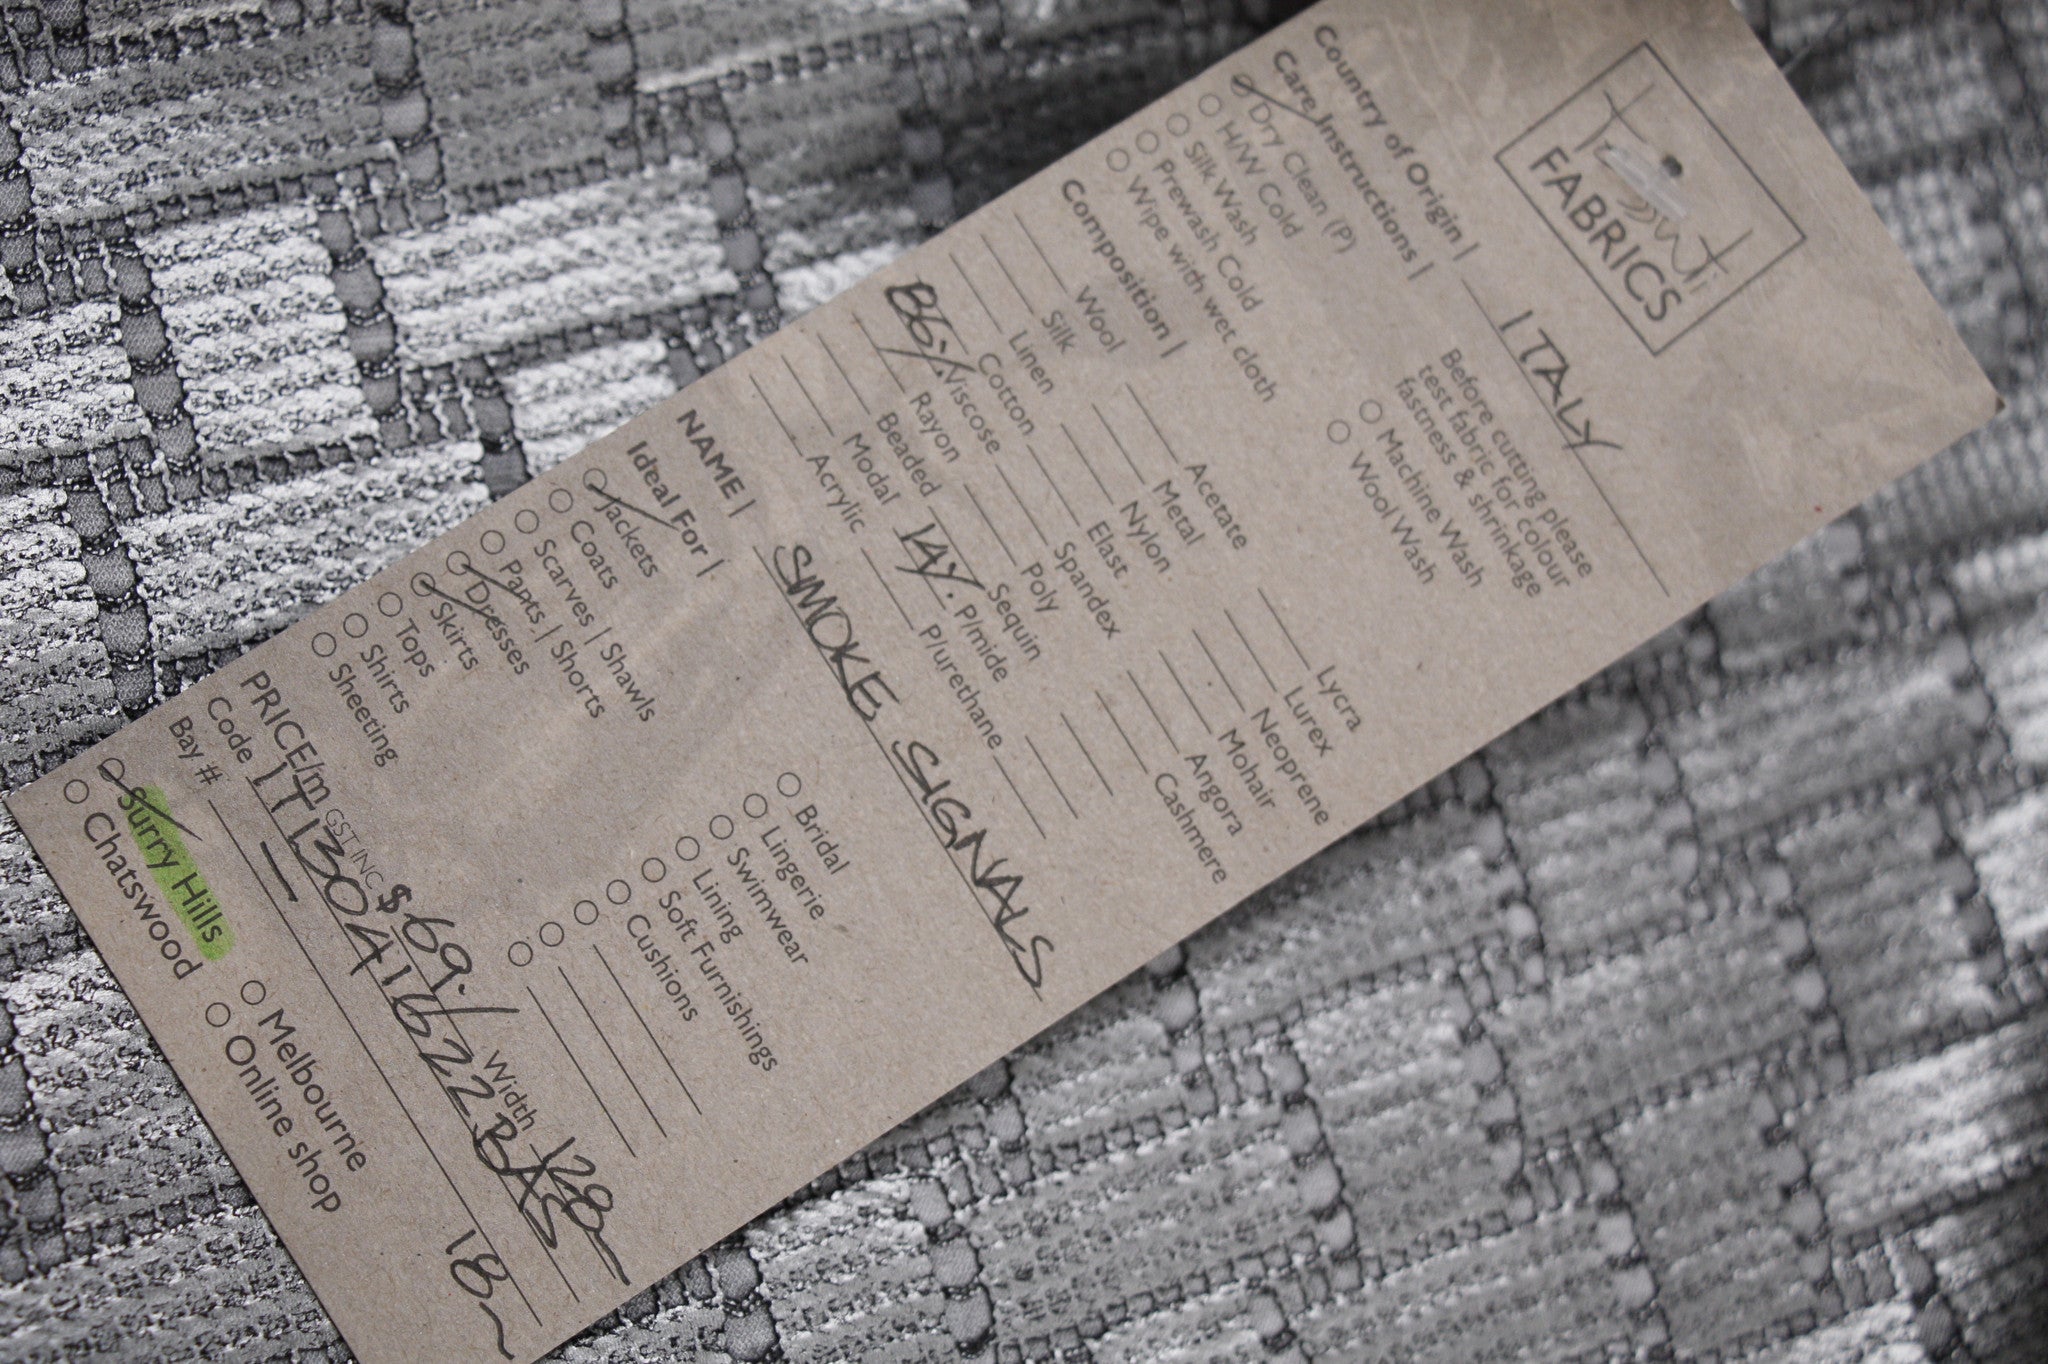 FABRICS
Country of Origin | ITALY
Care Instructions |
Dry Clean (P)
H/W Cold
Silk Wash
Prewash Cold
Wipe with wet cloth
Before cutting please
test fabric for colour
fastness & shrinkage
Machine Wash
Wool Wash
Composition |
Wool
Silk
Linen
Cotton
86% Viscose
Rayon
Beaded
Modal
Acrylic
Acetate
Metal
Nylon
Elast.
Spandex
Poly
Sequin
14% P/mide
P/urethane
Lycra
Lurex
Neoprene
Mohair
Angora
Cashmere
NAME | SMOKE SIGNALS
Ideal For |
Jackets
Coats
Scarves | Shawls
Pants | Shorts
Dresses
Skirts
Tops
Shirts
Sheeting
Bridal
Lingerie
Swimwear
Lining
Soft Furnishings
Cushions
PRICE/m GST INC $69.- Width 128
Code IT13041622BAS
Bay # — 18
Surry Hills
Chatswood
Melbourne
Online shop